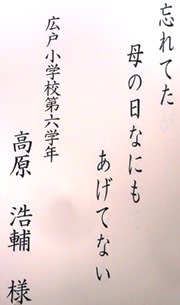 忘れてた
母の日なにも
あげてない
広戸小学校第六学年
高原 浩輔 様